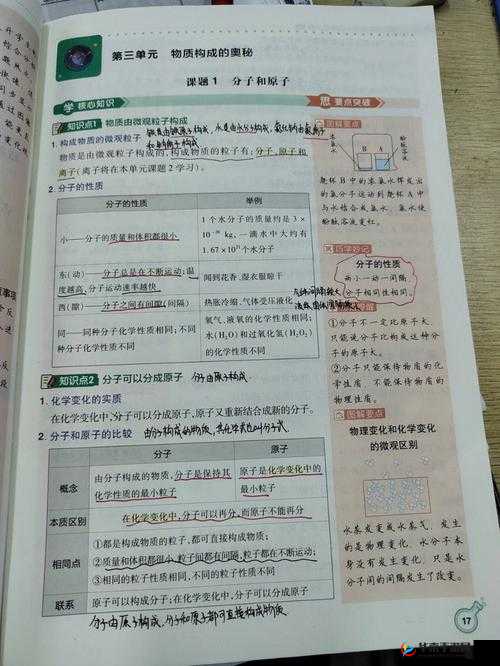 第三单元 物质构成的奥秘
课题1 分子和原子
学 核心知识
思 要点突破
知识点1 物质由微观粒子构成
1. 构成物质的微观粒子
物质是由微观粒子构成的,构成物质的粒子有:分子,原子和
离子(离子将在本单元课题2学习)。
2. 分子的性质
分子的性质 举例
小——分子的质量和体积都很小
1个水分子的质量约是3×
10⁻²⁶ kg,一滴水中大约有
1.67×10²¹个水分子
东(动)——分子总是在不断运动;温
度越高,分子运动速率越快
闻到花香、湿衣服晾干
西(隙)——分子之间有间隙(间隔)
热胀冷缩、气体受压液化
同——同种分子化学性质相同;不同
种分子化学性质不同
氧气、液氧的化学性质相同;
水(H₂O)和过氧化氢(H₂O₂)
的化学性质不同
知识点2 分子可以分成原子 分子由原子构成
1. 化学变化的实质
在化学变化中,分子可以分成原子,原子又重新结合成新的分子。
2. 分子和原子的比较
分子 原子
概念
由分子构成的物质,分子是保持其
化学性质的最小粒子
原子是化学变化中的
最小粒子
本质区别
在化学变化中,分子可以再分,而原子不能再分
相同点
①都是构成物质的粒子,都可直接构成物质;
②质量和体积都很小,粒子间都有间隔,粒子都在不断运动;
③相同的粒子性质相同,不同的粒子性质不同
联系
原子可以构成分子;在化学变化中,分子可以分成原子
分子由原子构成,分子和原子都可直接构成物质
图解要点
浓氨水
酚酞溶液
A
B
烧杯B中的浓氨水挥发出
的氨分子运动到烧杯A中
与水结合成氨水,氨水使
酚酞溶液变红。
巧学妙记
分子的性质
两小一动一间隔,
分子相同性相同。
①分子不一定比原子大,
只能说分子比构成这种分
子的原子大。
②分子只能保持物质的化
学性质,不能保持物质的
物理性质。
图解要点
物理变化和化学变化
的微观区别
水蒸发变成水蒸气,发生
的是物理变化,水分子本
身没有发生变化,只是水
分子间的间隔发生了改变。
17